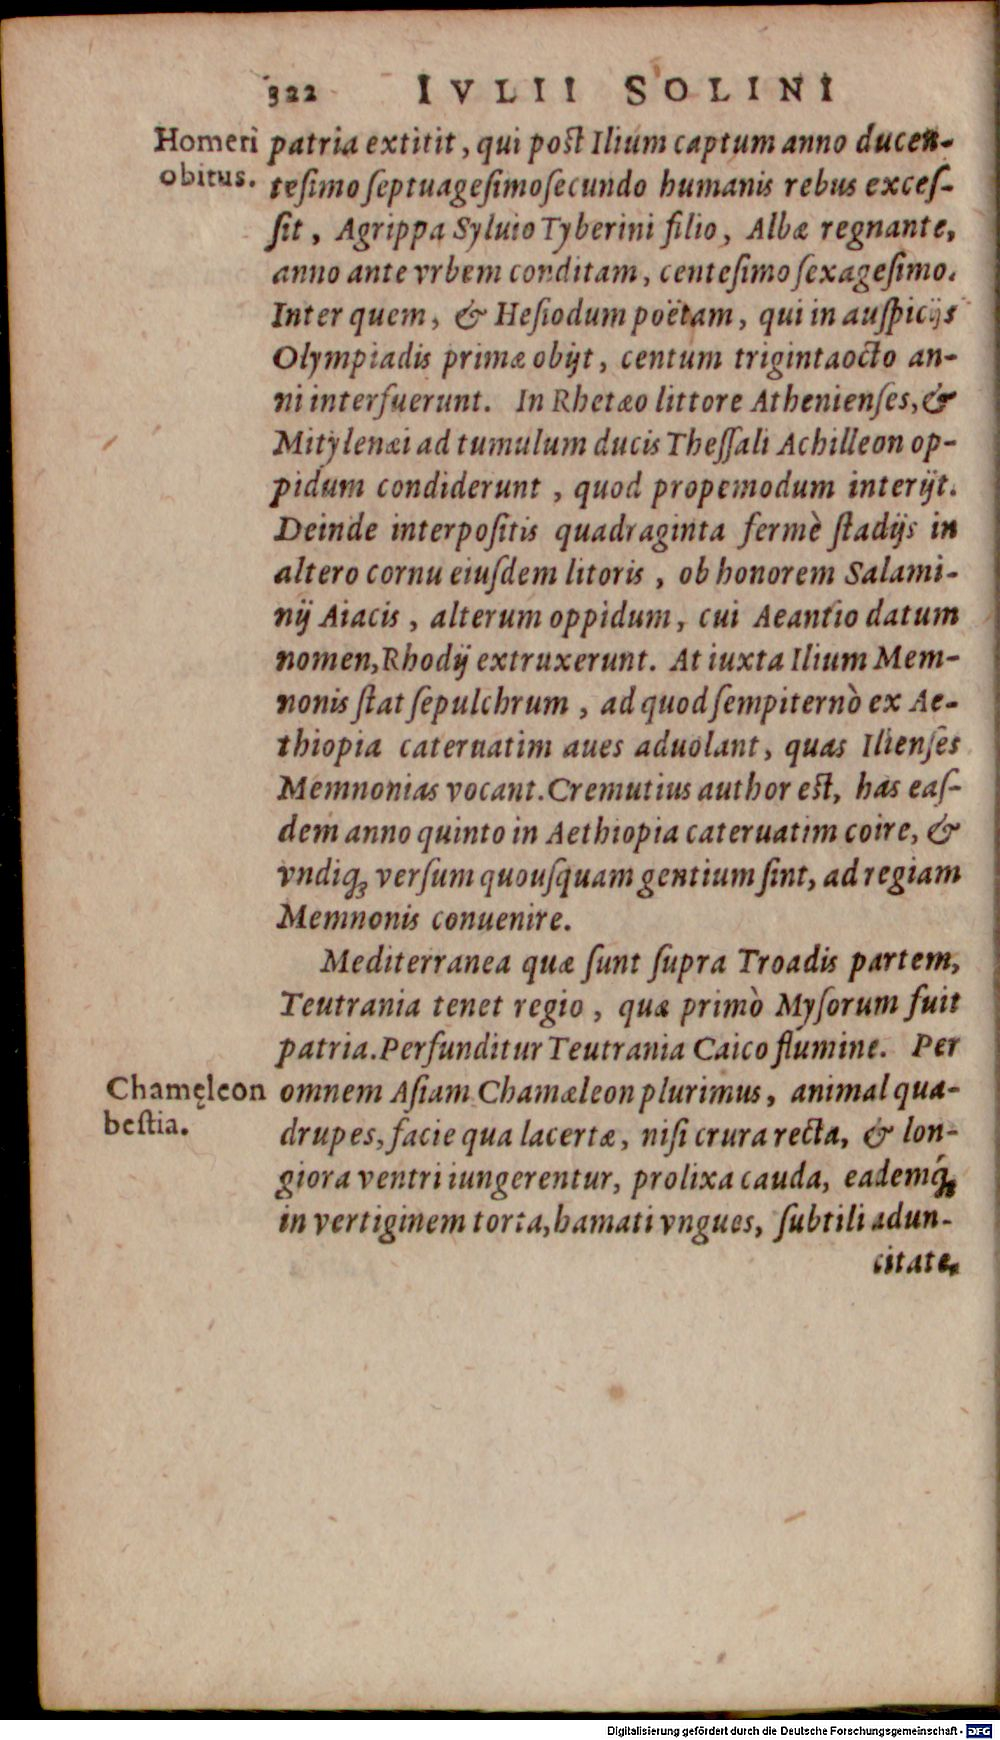 322 IVLII SOLINI
Homeri
obitus.
patria extitit, qui post Ilium captum anno ducen-
tesimo septuagesimosecundo humanis rebus exces-
sit, Agrippa Syluio Tyberini filio, Albæ regnante,
anno ante vrbem conditam, centesimo sexagesimo.
Inter quem, & Hesiodum poëtam, qui in auspicijs
Olympiadis primæ obijt, centum trigintaocto an-
ni interfuerunt. In Rhetæo littore Athenienses, &
Mitylenæi ad tumulum ducis Thessali Achilleon op-
pidum condiderunt, quod propemodum interijt.
Deinde interpositis quadraginta fermè stadijs in
altero cornu eiusdem litoris, ob honorem Salami-
nij Aiacis, alterum oppidum, cui Aeantio datum
nomen, Rhodij extruxerunt. At iuxta Ilium Mem-
nonis stat sepulchrum, ad quod sempiternò ex Ae-
thiopia cateruatim aues aduolant, quas Ilienses
Memnonias vocant. Cremutius author est, has eas-
dem anno quinto in Aethiopia cateruatim coire, &
vndiq; versum quousquam gentium sint, ad regiam
Memnonis conuenire.
Mediterranea quæ sunt supra Troadis partem,
Teutrania tenet regio, quæ primò Mysorum fuit
patria. Perfunditur Teutrania Caico flumine. Per
Chamęleon
bestia.
omnem Asiam Chamæleon plurimus, animal qua-
drupes, facie qua lacertæ, nisi crura recta, & lon-
giora ventri iungerentur, prolixa cauda, eademq́;
in vertiginem torta, hamati vngues, subtili adun-
citate,
Digitalisierung gefördert durch die Deutsche Forschungsgemeinschaft - DFG